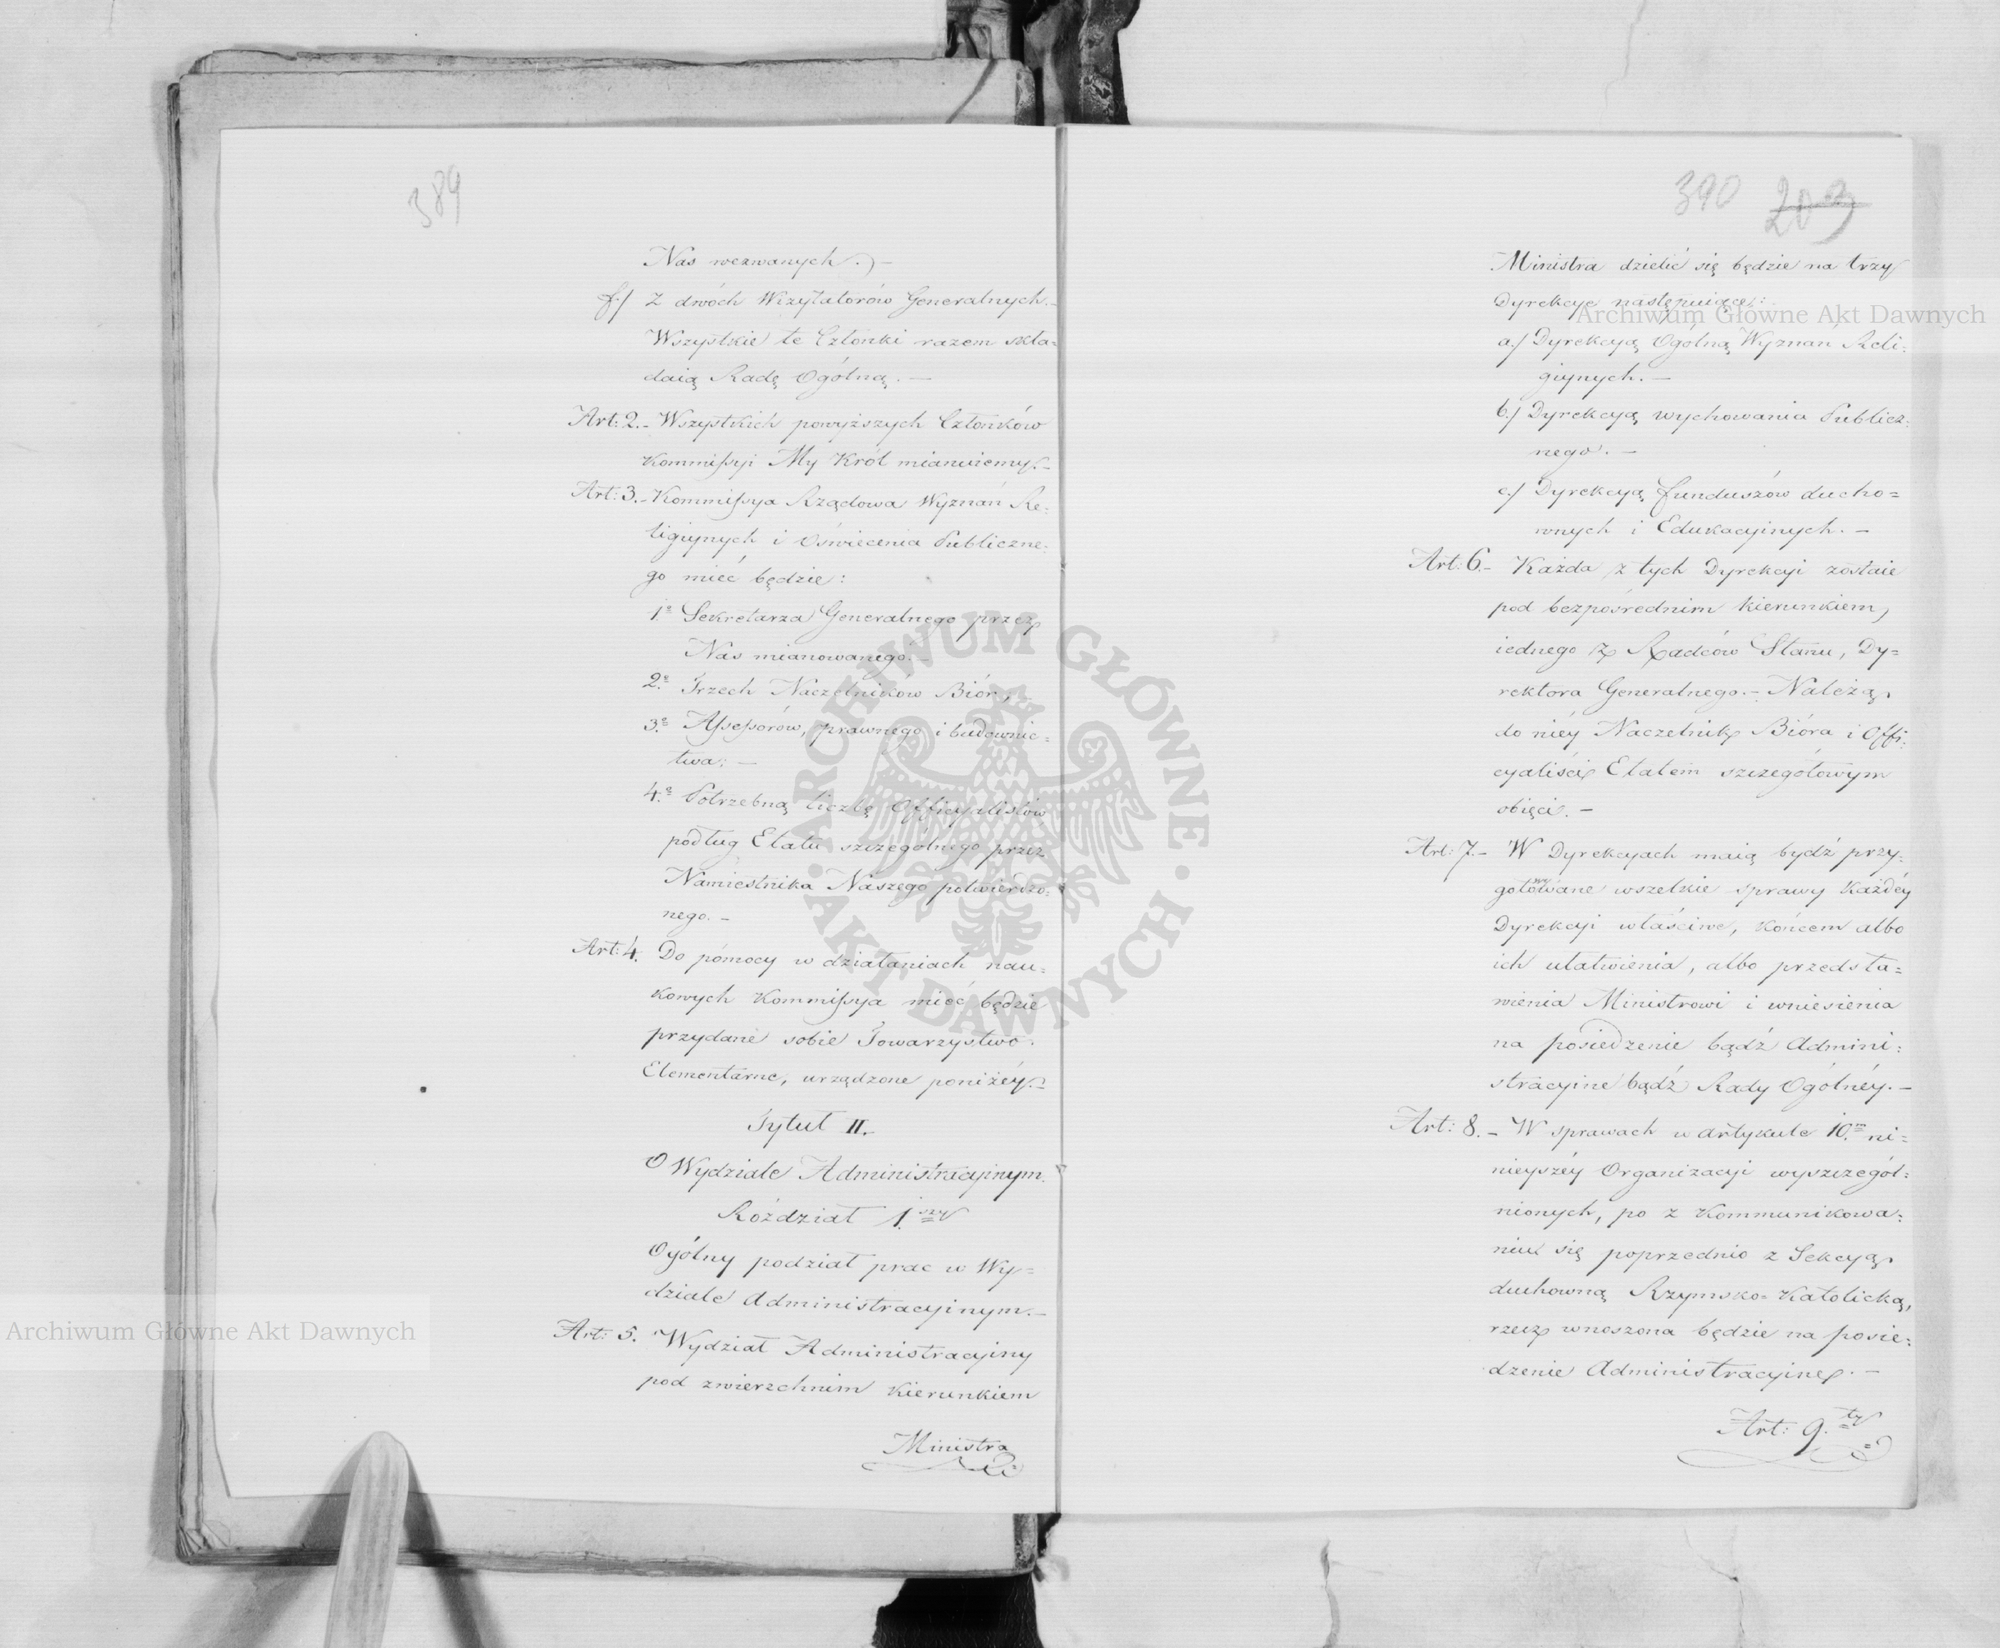 389
Nas wezwanych.) –
f/ Z dwóch Wizytatorów Generalnych. –
Wszystkie te Członki razem skła=
daią Radę Ogólną. –
Art: 2. – Wszystkich powyższych Członków
Kommissyi My Król mianuiemy. –
Art: 3. – Kommissya Rządowa Wyznań Re=
ligiynych i Oświecenia Publiczne=
go mieć będzie:
1.e Sekretarza Generalnego przez
Nas mianowanego. –
2.e Trzech Naczelników Biór, –
3.e Assessorów, prawnego i budownic=
twa; –
4.e Potrzebną liczbę Officyalistów
podług Etatu szczególnego przez
Namiestnika Naszego potwierdzo=
nego. –
Art: 4. Do pómocy w działaniach nau=
kowych Kommissya mieć będzie
przydane sobie Towarzystwo
Elementarne, urządzone poniżéy. –
Tytuł II. –
O Wydziale Administracyinym.
Rozdział 1.szy
Ogólny podział prac w Wy=
dziale Administracyinym. –
Art: 5. Wydział Administracyiny
pod zwierzchnim Kierunkiem
Ministra
390 203
Ministra dzielić się będzie na trzy
Dyrekcye następuiące:
a./ Dyrekcyą Ogólną Wyznań Reli=
giynych. –
b./ Dyrekcyą wychowania Publicz=
nego. –
c./ Dyrekcyą funduszów ducho=
wnych i Edukacyinych. –
Art: 6. – Każda z tych Dyrekcyi zostaie
pod bezpośrednim kierunkiem,
iednego z Radców Stanu, Dy=
rektora Generalnego. – Należą
do niéy Naczelnik Bióra i Offi=
cyaliści Etatem szczegółowym
obięci. –
Art: 7. – W Dyrekcyach maią bydź przy=
gotowane wszelkie sprawy każdéy
Dyrekcyi właściwe, końcem albo
ich ułatwienia, albo przedsta=
wienia Ministrowi i wniesienia
na posiedzenie bądź Admini=
stracyine bądź Rady Ogólnéy. –
Art: 8. – W sprawach w artykule 10.m ni=
nieyszéy Organizacyi wyszczegól=
nionych, po z Kommunikowa=
niu się poprzednio z Sekcyą
duchowną Rzymsko=Katolicką,
rzecz wnoszona będzie na posie=
dzenie Administracyine. –
Art: 9.ty
Archiwum Główne Akt Dawnych
Archiwum Główne Akt Dawnych
ARCHIWUM GŁÓWNE · AKT DAWNYCH ·